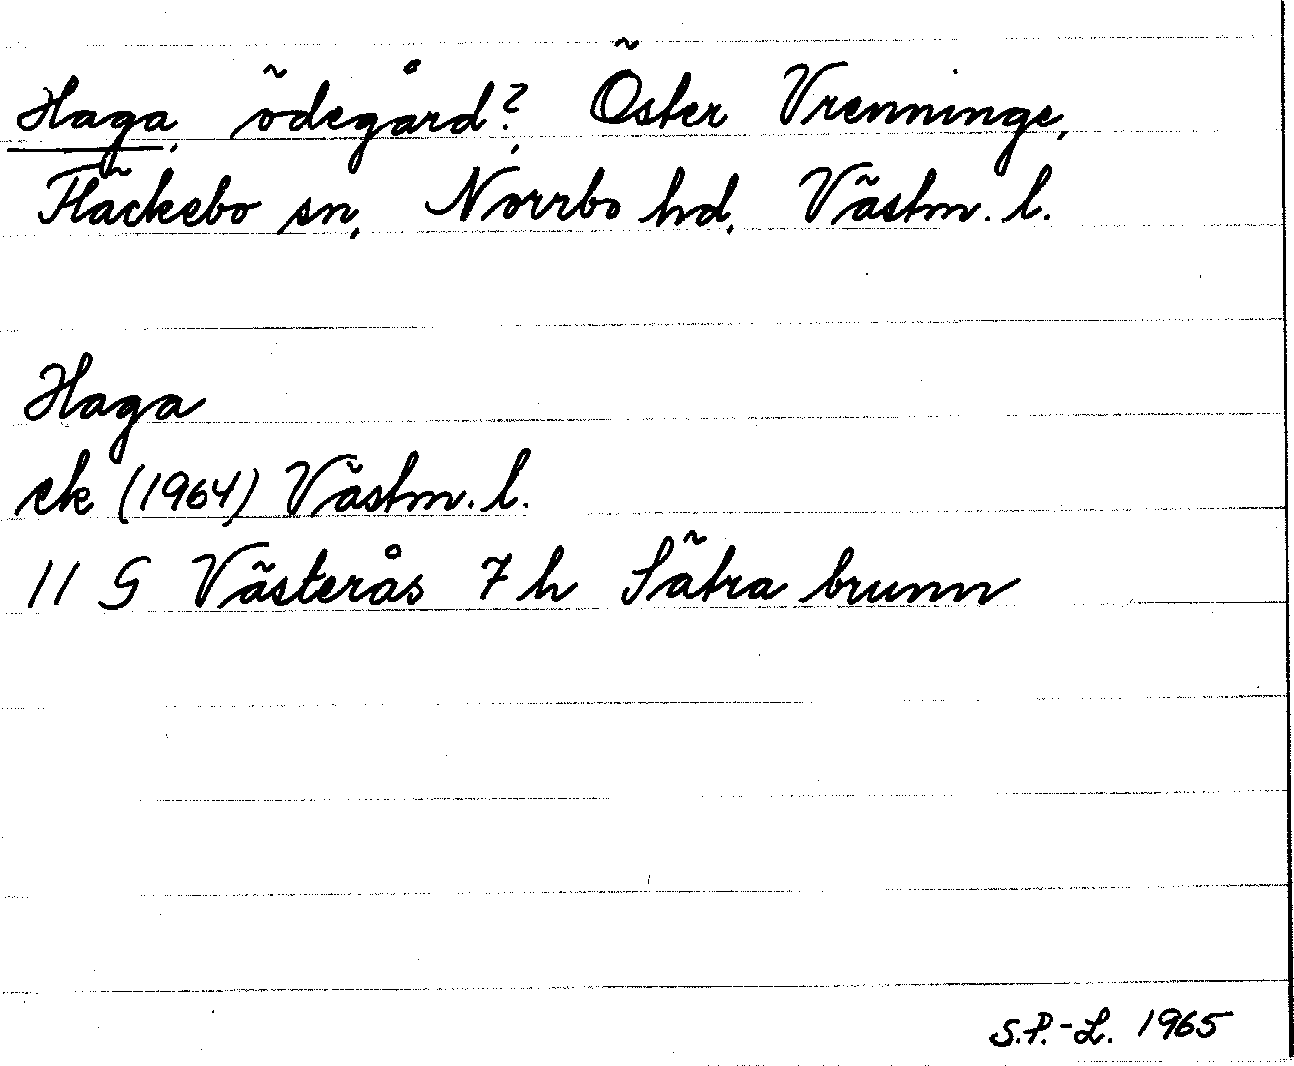 Haga, ödegård?, Öster Vrenninge,
Fläckebo sn, Norrbo hd, Västm. l.
Haga
ek (1964) Västm. l.
11 G Västerås 7 h Sätra brunn
S.P.-L. 1965